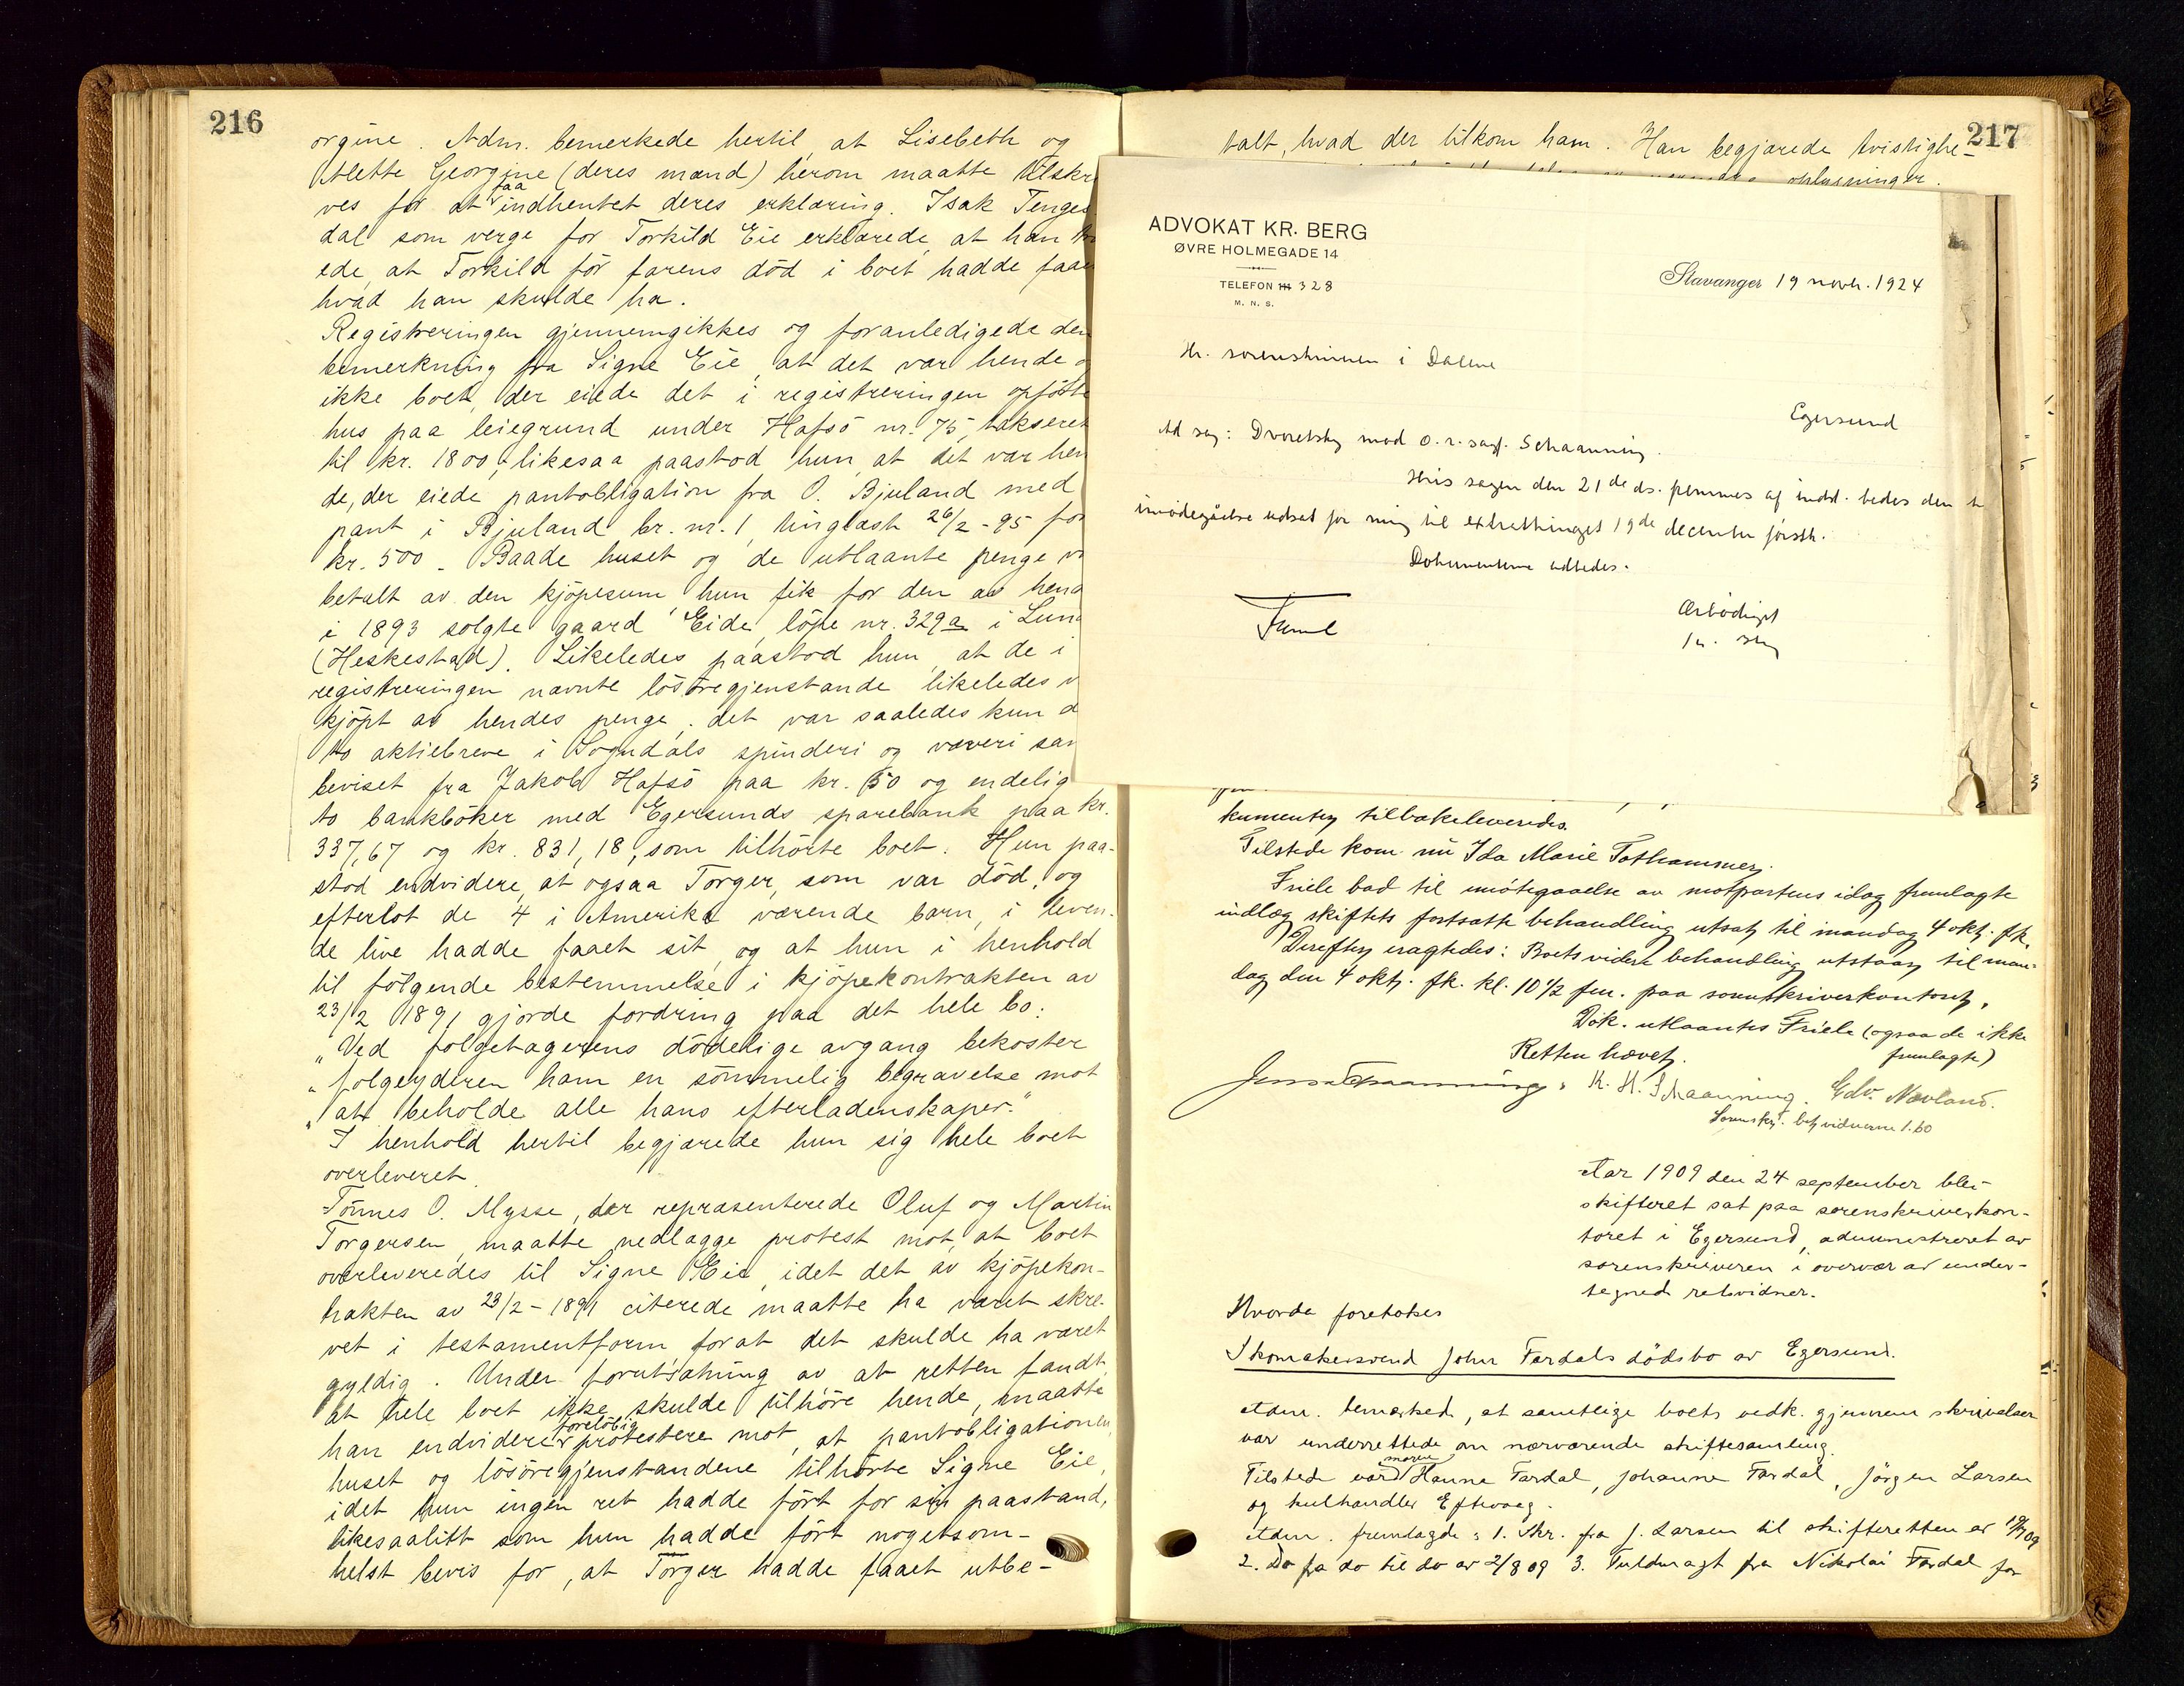 216
orgine. Adm. bemerkede hertil, at Lisebeth og
Atlette Georgine (deres mænd) herom maatte tilskr
ves for at faa indhentet deres erklæring. Isak Tenges
dal som verge for Torkild Eie erklærede, at han
ede, at Torkild för farens död i boet hadde faa
hvad han skulde ha.
Registreringen gjennemgikkes og foranledigede den
bemerkning fra Signe Eie, at det var hende
ikke boet, der eiede det i registreringen opförte
hus paa leiegrund under Hafsö nr. 75, takseret
til kr. 1800, likesaa paastod hun, at det var hen
de, der eiede pantobligation fra O. Bjuland med
pant i Bjuland br. nr. 1, tinglæst 26/2-95 for
kr. 500. Baade huset og de utlaante penge
betalt av den kjöpesum hun fik for den av hend
i 1893 solgte gaard Eide, löpe nr. 329a i Lund
(Heskestad). Likeledes paastod hun, at de i
registreringen nævnte lösöregjenstande likeledes v
kjöpt av hendes penge, det var saaledes kun d
to aktiebreve i Sogndals spinderi og væveri sam
beviset fra Jakob Hafsö paa kr. 50 og endelig
to bankböker med Egersunds sparebank paa kr.
337,67 og kr. 831,18, som tilhörte boet. Hun paa-
stod endvidere, at ogsaa Torger, som var död, og
efterlot de 4 i Amerika værende barn, i leven-
de live hadde faaet sit, og at hun i henhold
til fölgende bestemmelse i kjöpekontrakten av
23/2 1891 gjorde fordring paa det hele bo:
"Ved folgetagerens dödelige avgang bekoster
"folgeyderen ham en sömmelig begravelse mot
"at beholde alle hans efterladenskaper."
I henhold hertil begjærede hun sig hele boet
overleveret.
Tönnes O. Mysse, der repræsenterede Oluf og Martin
Torgersen, maatte nedlægge protest mot, at boet
overleveredes til Signe Eie, idet det av kjöpekon-
trakten av 23/2-1891 citerede maatte ha været skre-
vet i testamentform, forat det skulde ha været
gyldig. Under forutsætning av at retten fandt,
at hele boet ikke skulde tilhöre hende, maatte
han endvidere foreløbig protestere mot, at pantobligationen,
huset og lösöregjenstandene tilhörte Signe Eie,
idet hun ingen ret hadde fört for sin paastand,
likesaalitt som hun hadde fört nogetsom-
helst bevis for, at Torger hadde faaet utbe-
217
talt, hvad der tilkom ham. Han begjærede tvistighe-
oplysninger.
ADVOKAT KR. BERG
ØVRE HOLMEGADE 14
TELEFON 328
M. N. S.
Stavanger 19 novb. 1924
Hr. sorenskriveren i Dalene
Egersund
Ad sag: Dvoretsky mod o.r.sagf. Schaanning.
Hvis sagen den 21de ds. fremmes af indst. bedes den t
imødegåelse udsat for mig til extrarettinget 19de december førstk.
Dokumenterne udbedes.
Ærbödigst
kumenter tilbakeleveredes.
Tilstede kom nu Ida Marie Tothammer.
Friele bad til imötegaaelse av motpartens idag fremlagte
indlæg skiftets fortsatte behandling utsat til mandag 4 okt. fk.
Derefter eragtedes: Boets videre behandling utstaar til man-
dag den 4 okt. fk. kl. 10 1/2 fm. paa sorenskriverkontoret.
Dok. utlaantes Friele (ogsaa de ikke
fremlagte)
Retten hævet.
Jens Schaanning. K. H. Schaanning. Edv. Nævland.
Sorenskr. bet. vidnerne 1.60
Aar 1909 den 24 september blev
skifteret sat paa sorenskriverkon-
toret i Egersund, administreret av
sorenskriveren i overvær av under-
tegned retsvidner.
Hvorda foretokes
Skomakersvend John Tardals dödsbo av Egersund.
Adm. bemerked, at samtlige boets vedk. gjennem skrivelser
var underrettede om nærværende skiftesamling.
Tilstede var moren Hanne Tardal, Johanne Tardal, Jörgen Larsen
og kulhandler Eftevaag.
Adm. fremlagde: 1. Skr. fra J. Larsen til skifteretten av 19/7 09
2. Do fra do til do av 2/8 09 3. Fuldmagt fra Nikolai Tardal for